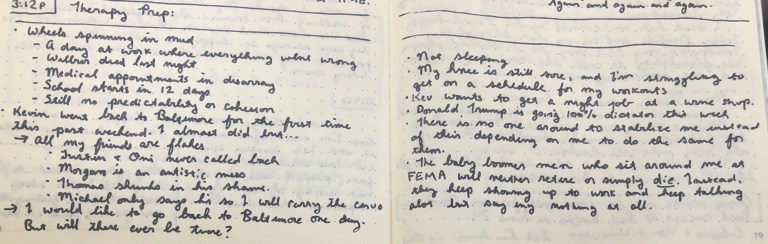 3:12P Therapy Prep:
• Wheels spinning in mud
- A day at work where everything went wrong
- Walter died last night
- Medical appointments in disarray
- School starts in 12 days
- Still no predictability or cohesion
• Kevin went back to Baltimore for the first time
this past weekend. I almost did but...
→ All my friends are flakes
- Justin & Omi never called back
- Morgan is an autistic mess
- Thomas shrinks in his shame.
- Michael only says hi so I will carry the convo
→ I would like to go back to Baltimore one day.
But will there ever be time?
Again and again and again.
• Not sleeping
• My knee is still sore, and I'm struggling to
get on a schedule for my workouts
• Kev wants to get a night job at a wine shop.
• Donald Trump is going 100% dictator this week
• There is no one around to stabilize me instead
of their depending on me to do the same for
them.
• The baby boomer men who sit around me at
FEMA will neither retire or simply die. Instead,
they keep showing up to work and keep talking
alot but say nothing at all.